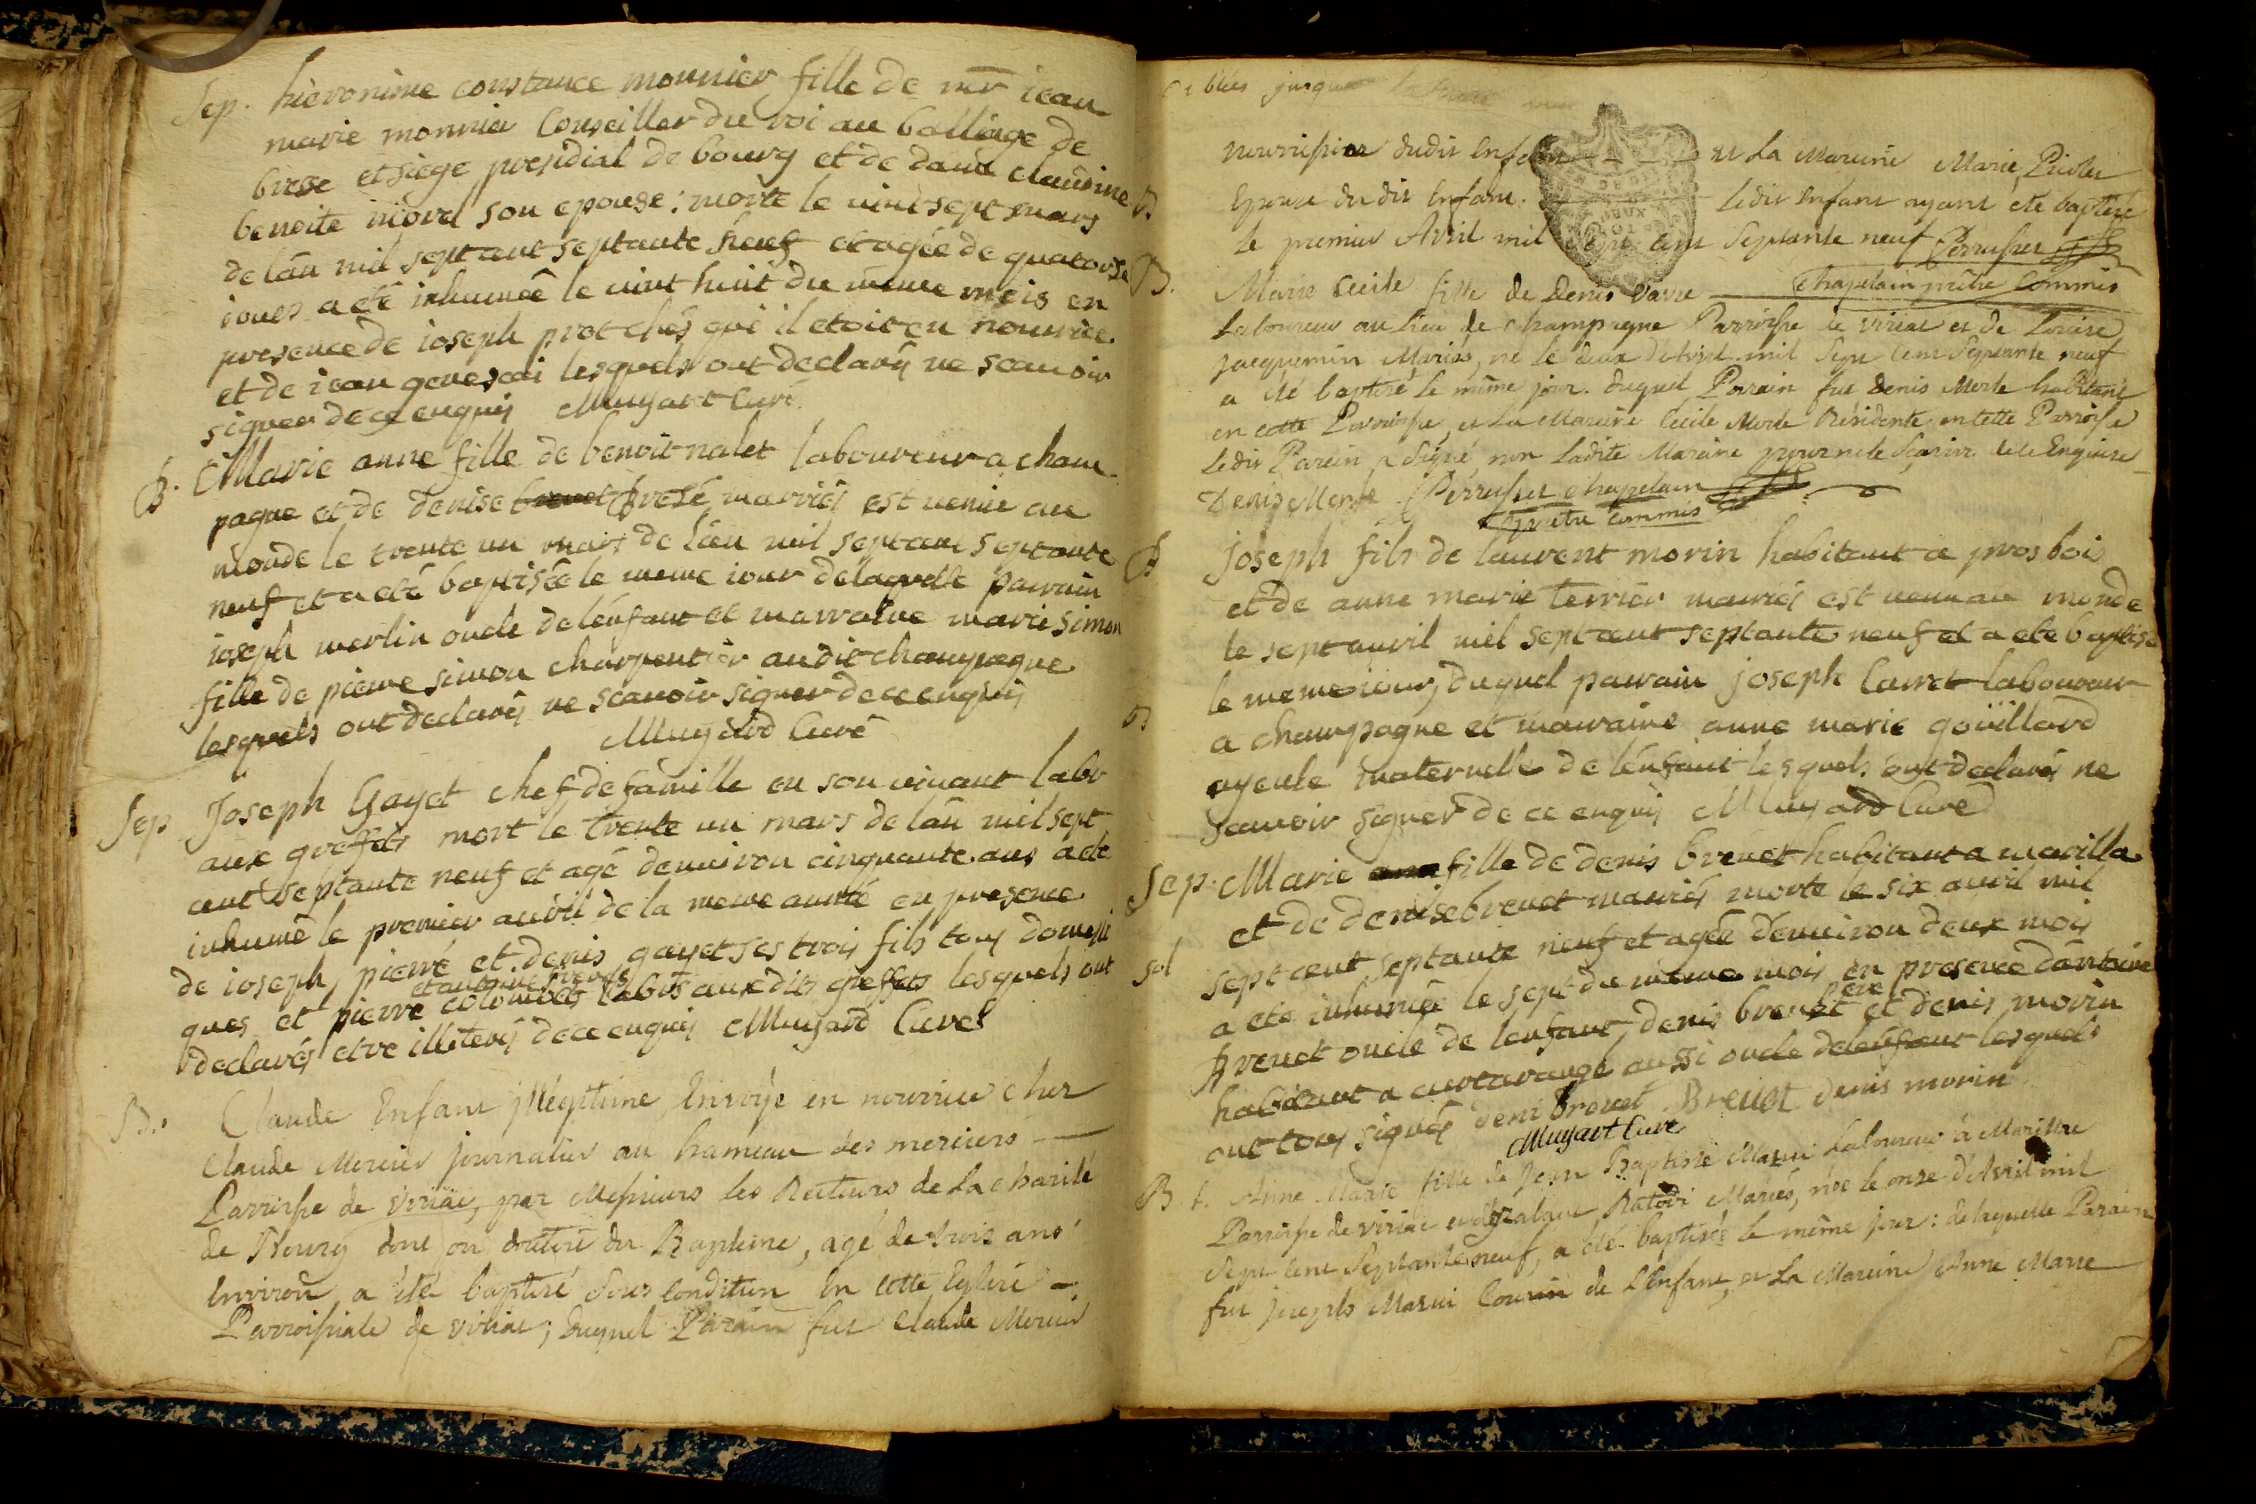 Sep. hieronime constance monnier fille de mr iean
marie monnier Conseiller du roi au balliage de
bresse et siege presidial de bourg et de dame claudine
benoite morel son epouse: morte le vint sept mars
de lan mil sept cent septante neuf et agée de quatorse
iours a eté inhumée le vint huit du meme mois en
presence de ioseph prot chés qui il etoit en nourrice
et de iean lesquels ont declarés ne scauoir
signer de ce enquis Muyart Curé
B. Marie anne fille de benoit nalet laboureur a cham
pagne et de denise bresé marriés est venüe au
monde le trente un mars de lan mil sept cent septante
neuf et a eté baptisée le meme iour de laquelle parrain
ioseph merlin oncle de lenfant et marraine marie simon
fille de pierre simon charpentier audit champagne
lesquels ont declarés ne scauoir signer de ce enquis
Muyard Curé
Sep Joseph Gayet chef de famille en son viuant labr
aux greffets mort le trente un mars de lan mil sept
cent septante neuf et agé denuiron cinquante ans a eté
inhumé le premier auril de la meme année en presence
de ioseph, pierre et denis gayet ses trois fils tous domesti
ques et pierre labrs auxdits greffets lesquels ont
declarés etre illiterés de ce enquis Muyard Curé
B. Claude Enfant illégitime Envoyé en nourrice chez
Claude Mercier journalier au hameau des merciers
Parroisse de viriac, par Messieurs les Recteurs de La charité
de Bourg dont on doutoit du Baptême, agé de trois ans
Environ a été baptisé sous condition En cette Eglise
Parroissiale de viriac; Duquel Parain fut Claude Mercier
nourrissier dudit Enfant et La Mareine Marie
Epouse du dit Enfant. Ledit Enfant ayant eté baptisé
le premier Avril mil sept cent Septante neuf Perruset
B. Marie Cecile fille de Denis Varre Chapelain prêtre Commis
Laboureur au Lieu de Champagne Parroisse de viriac et de Louise
Jacquemin Mariés, né le deux d'Avril mil Sept Cent Septante neuf
a été baptisé le même jour. duquel Parain fut Denis Merle habitant
en cette Parroisse, et La Mareine Cecile Merle Résidente en cette Parroisse
Ledit Parain a Signé non Ladite Mareine pour ne le Sçavoir de ce Enquise
Denis Merle Perruset Chapelain
prêtre commis
B Joseph fils de laurent morin habitant a prosbois
et de anne marie terrier mariés est venu au monde
le sept auril mil sept cent septante neuf et a eté baptisé
le meme iour, duquel parrain joseph Carret laboureur
a champagne et marraine anne marie goüillard
ayeule maternelle de lenfant lesquels ont declarés ne
scauoir signer de ce enquis Muyard Curé
Sep. Marie fille de denis breuet habitant a marilla
et de denise breuet mariés morte le six auril mil
sept cent septante neuf et agée denuiron deux mois
a eté inhumée le sept du meme mois en presence dantoine
breuet oncle de lenfant, denis breuet père et denis morin
habitant a curtarange aussi oncle de lenfant lesquels
ont tous signés deni brevet Breuet denis morin
Muyart Curé
B. f. Anne Marie fille de Jean Baptiste Mazui Laboureur à Marillat
Parroisse de viriac Mariés, née le onze d'Avril mil
Sept cent Septante neuf, a été baptisée le même jour: de laquelle Parain
fut joseph Mazui Cousin de L'Enfant, et La Mareine Anne Marie